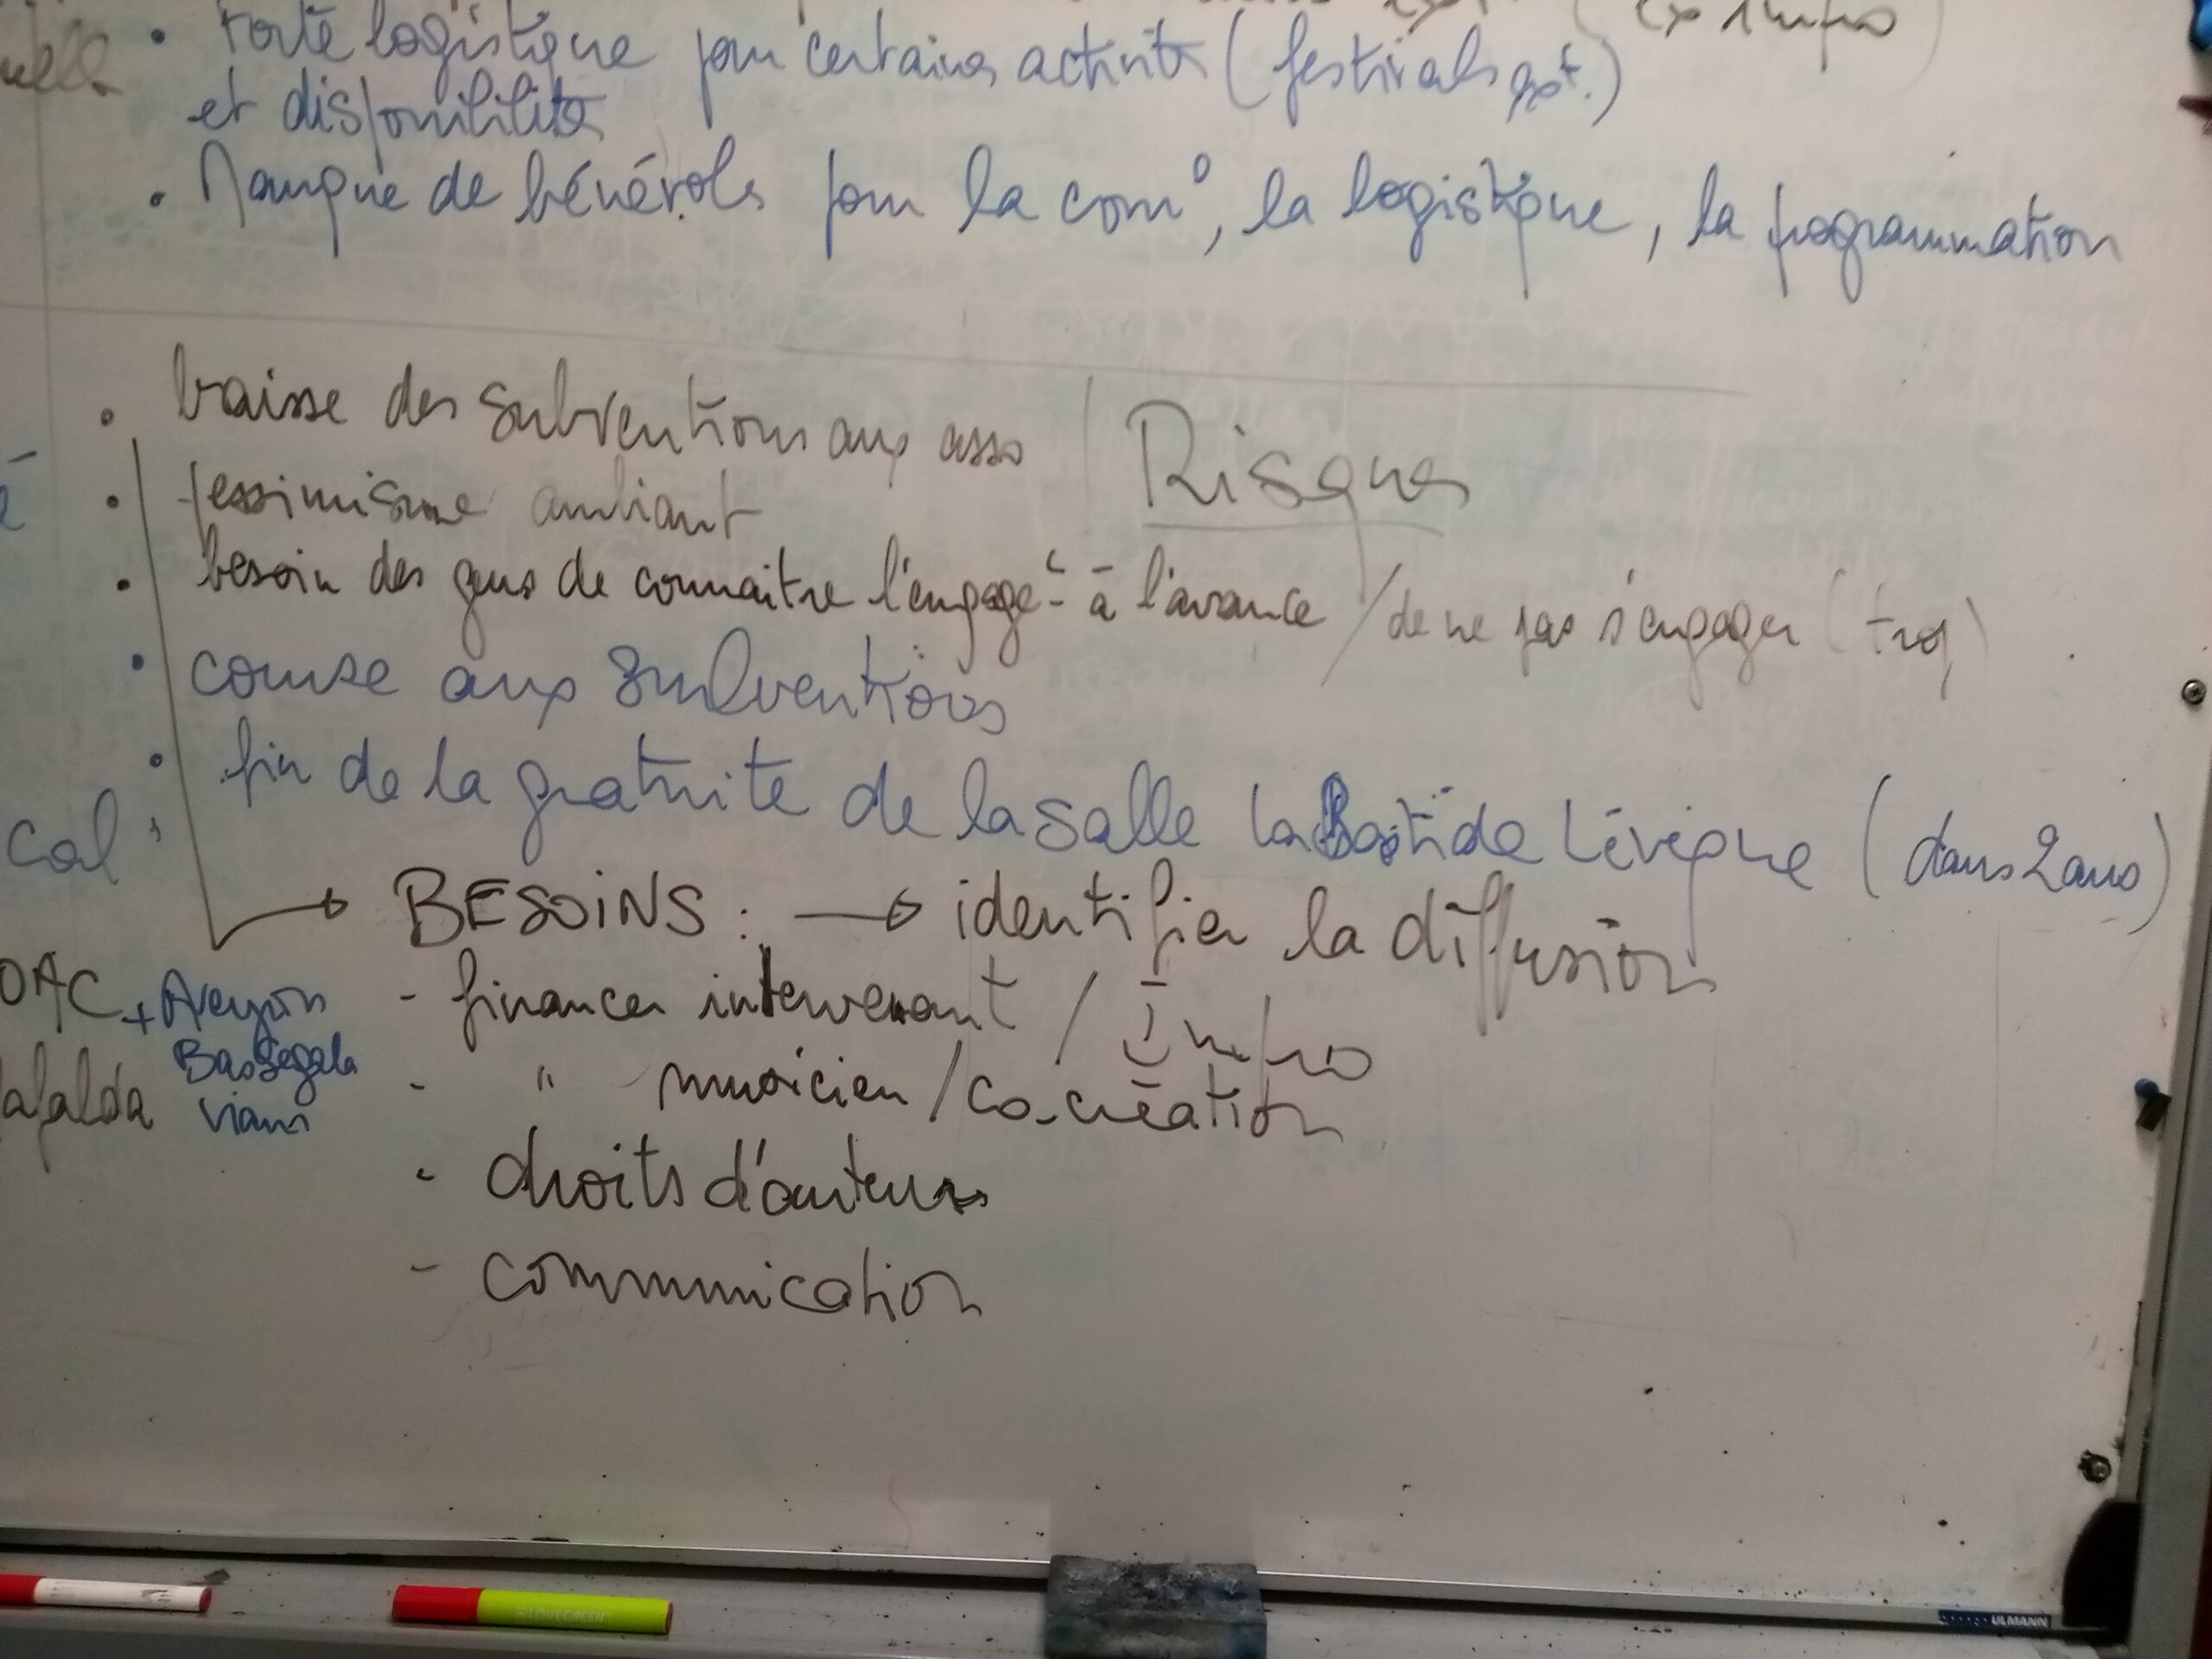 • Forte logistique pour certaines activités (festivals ext.)
et disponibilités
• Manque de bénévols pour la com°, la logistique, la programmation
• baisse des subventions aux asso
Risques
• pessimisme ambiant
• besoin des gens de connaître l'engage^t à l'avance / de ne pas s'engager (trop)
• course aux subventions
• fin de la gratuite de la salle La Bastide Lévêque (dans 2 ans)
cal
→ BESOINS : → identifier la diffusion
OAC + Aveyron
- financer intervenant / Impro
Bas Segala
afalda
Viaur
- " musicien / co-création
- droits d'auteurs
- communication
ULMANN